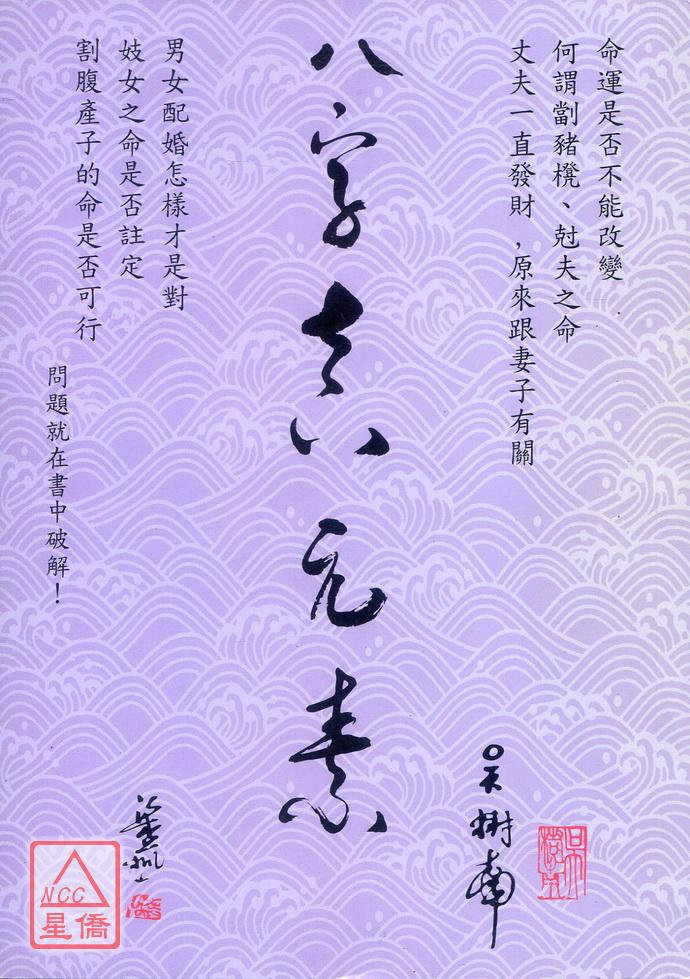 命運是否不能改變
何謂劏豬櫈、尅夫之命
丈夫一直發財，原來跟妻子有關
八字真元素
男女配婚怎樣才是對
妓女之命是否註定
割腹產子的命是否可行
問題就在書中破解！
吴樹南
NCC
星僑